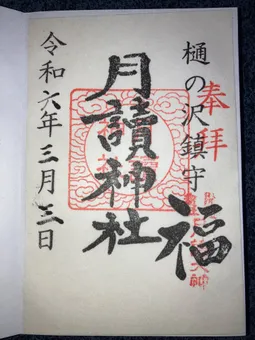 奉拝
樋の沢鎮守
福
月讀神社
令和六年三月三日